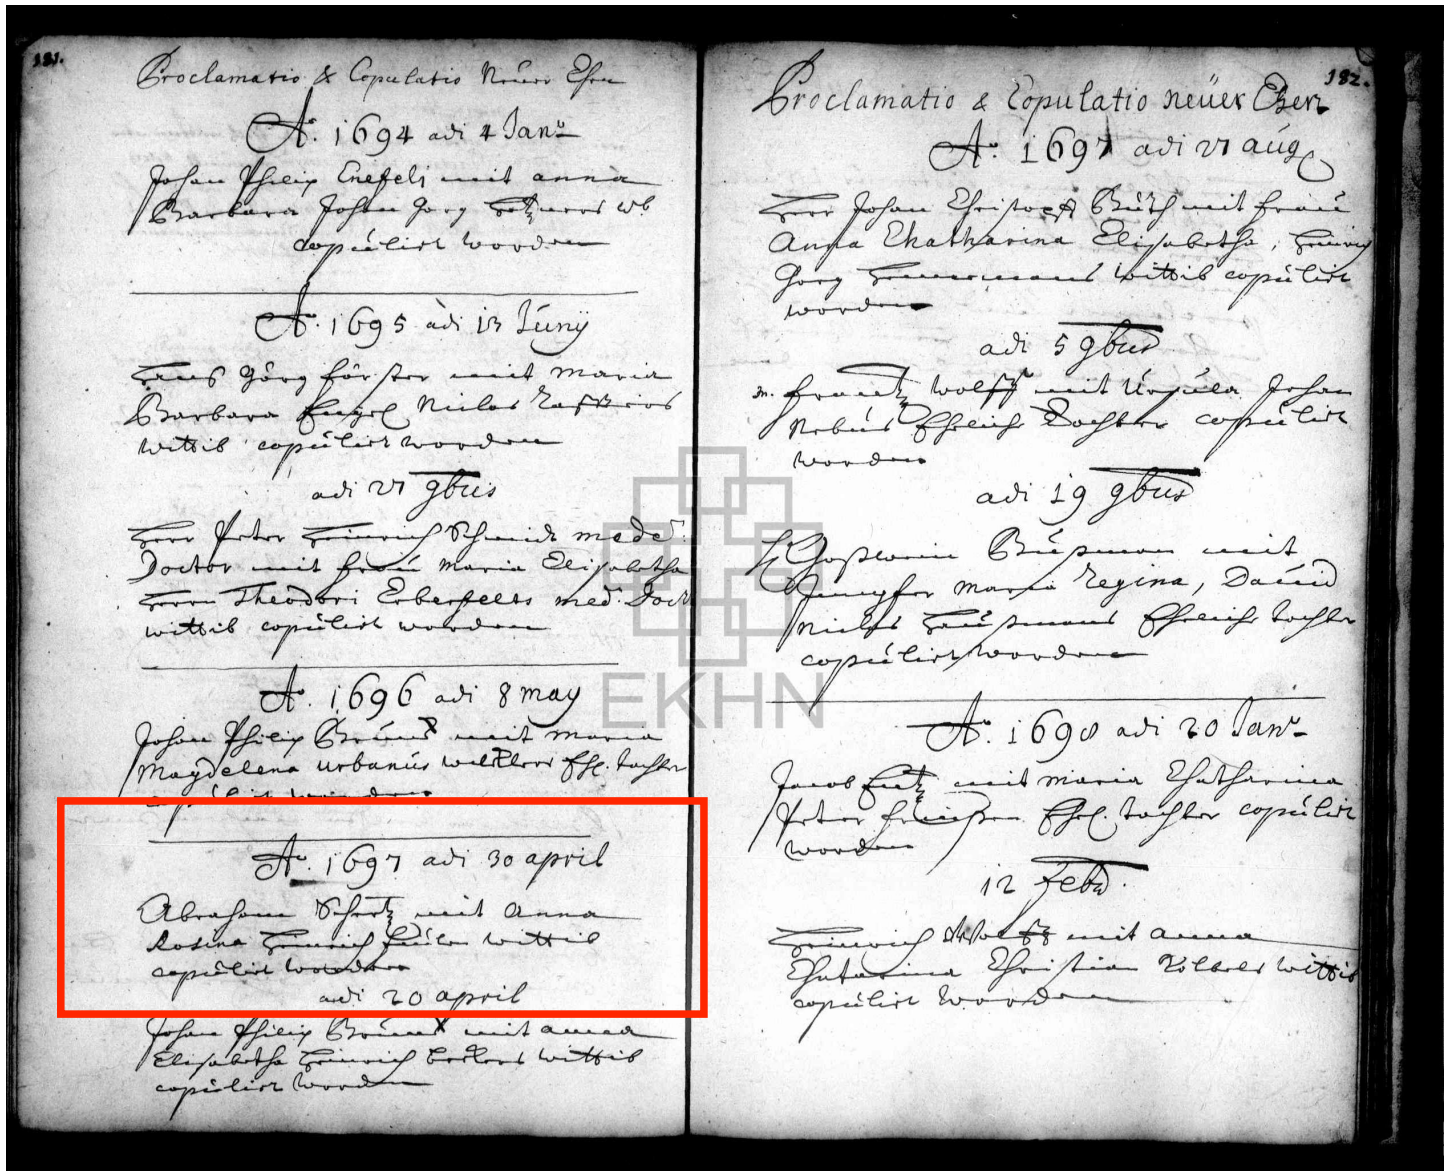 181.
Proclamatio & Copulatio Neüer Ehen
Aº. 1694 adi 4 Janu
Johan Philip Enefels mit anna
Barbara Johan Görg wb.
copùlirt worden
Aº. 1695 adi 13 Junÿ
Hans Görg förster mit Maria
Barbara Engel Niclos
wittib copùlirt worden
adi 27 9bris
Herr Peter Heinrich Schmidt mede:
Doctor mit fraú Maria Elisabetha
Herrn Theodori med: Doct
wittib copùlirt worden
Aº. 1696 adi 8 may
Johan Philip mit maria
Magdelena urbanús Ehl. tochter
copùlirt worden
Aº. 1697 adi 30 april
Abraham Schertz mit Anna
Rosina Heinrich wittib
copùlirt worden
adi 20 april
Johan Philip mit anna
Elisabetha Heinrich wittib
copùlirt worden
182.
Proclamatio & Copulatio neüer Ehen
Aº. 1697 adi 27 aúg
Herr Johan Christoph mit fraú
Anna Chatharina Elisabetha,
Görg wittib copùlirt
worden
adi 5 9bris
frantz wolff mit Úrsúla Johan
Ehelich Dochter copùlirt
worden
adi 19 9bris
mit
Jungfer Maria Regina, David
Niclos Ehelich tochter
copùlirt worden
EKHN
Aº. 1698 adi 20 Janu
Jacob mit maria Chatharina
Peter Ehel. tochter copùlirt
worden
12 febr.
Heinrich mit anna
Chatarina Christian wittib
copùlirt worden